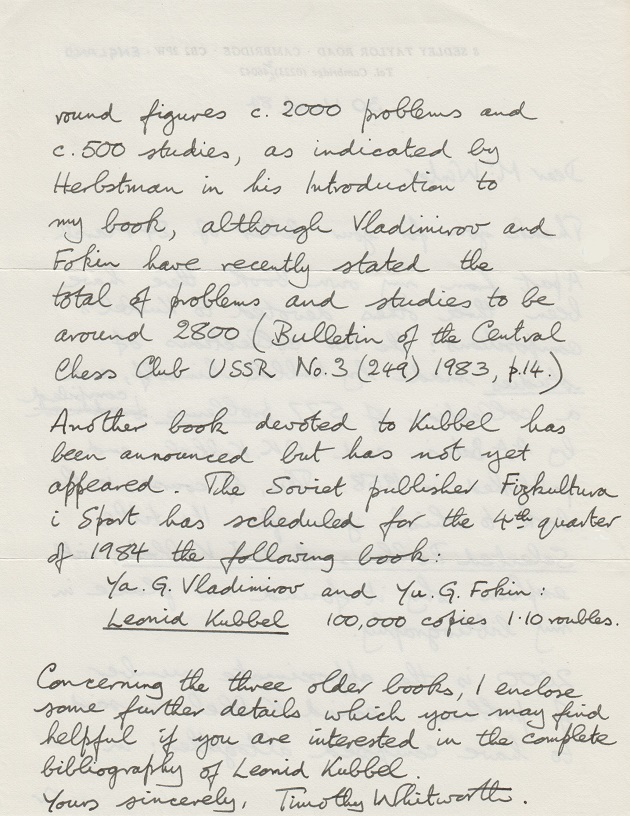 round figures c. 2000 problems and
c. 500 studies, as indicated by
Herbstman in his Introduction to
my book, although Vladimirov and
Fokin have recently stated the
total of problems and studies to be
around 2800 (Bulletin of the Central
Chess Club USSR No. 3 (249) 1983, p.14.)
Another book devoted to Kubbel has
been announced but has not yet
appeared. The Soviet publisher Fizkultura
i Sport has scheduled for the 4th quarter
of 1984 the following book:
Ya. G. Vladimirov and Yu. G. Fokin:
Leonid Kubbel 100,000 copies 1·10 roubles.
Concerning the three older books, I enclose
some further details which you may find
helpful if you are interested in the complete
bibliography of Leonid Kubbel.
Yours sincerely, Timothy Whitworth.